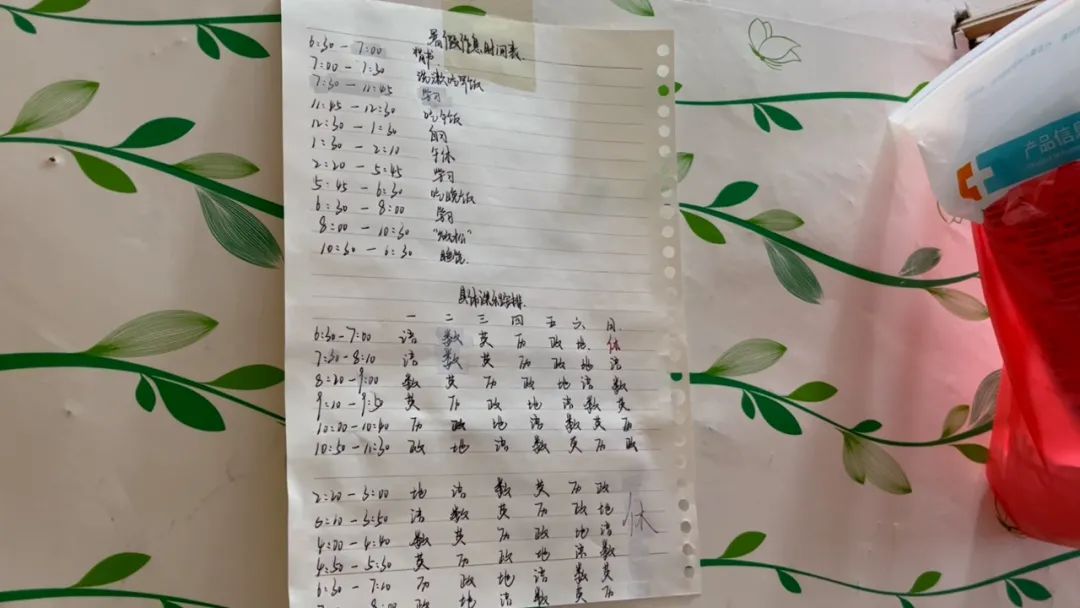 暑假作息时间表
6:30-7:00 背书
7:00-7:30 洗漱吃早饭
7:30-11:45 学习
11:45-12:30 吃午饭
12:30-1:30
1:30-2:10 午休
2:20-5:45 学习
5:45-6:30 吃晚饭
6:30-8:00 学习
8:00-10:30 "放松"
10:30-6:30 睡觉
具体课示安排
一 二 三 四 五 六 日
6:30-7:00 语 数 英 历 政 地 休
7:30-8:10 语 数 英 历 政 地 语
8:20-9:00 数 英 历 政 地 语 数
9:10-9:50 英 历 政 地 语 数 英
10:00-10:40 历 政 地 语 数 英 历
10:50-11:30 政 地 语 数 英 历 政
2:20-3:00 地 语 数 英 历 政
3:10-3:50 语 数 英 历 政 地 休
4:00-4:40 数 英 历 政 地 语
4:50-5:30 英 历 政 地 语 数
6:30-7:10 历 政 地 语 数 英
8:00 政 地 语 数 英 历
产品信息